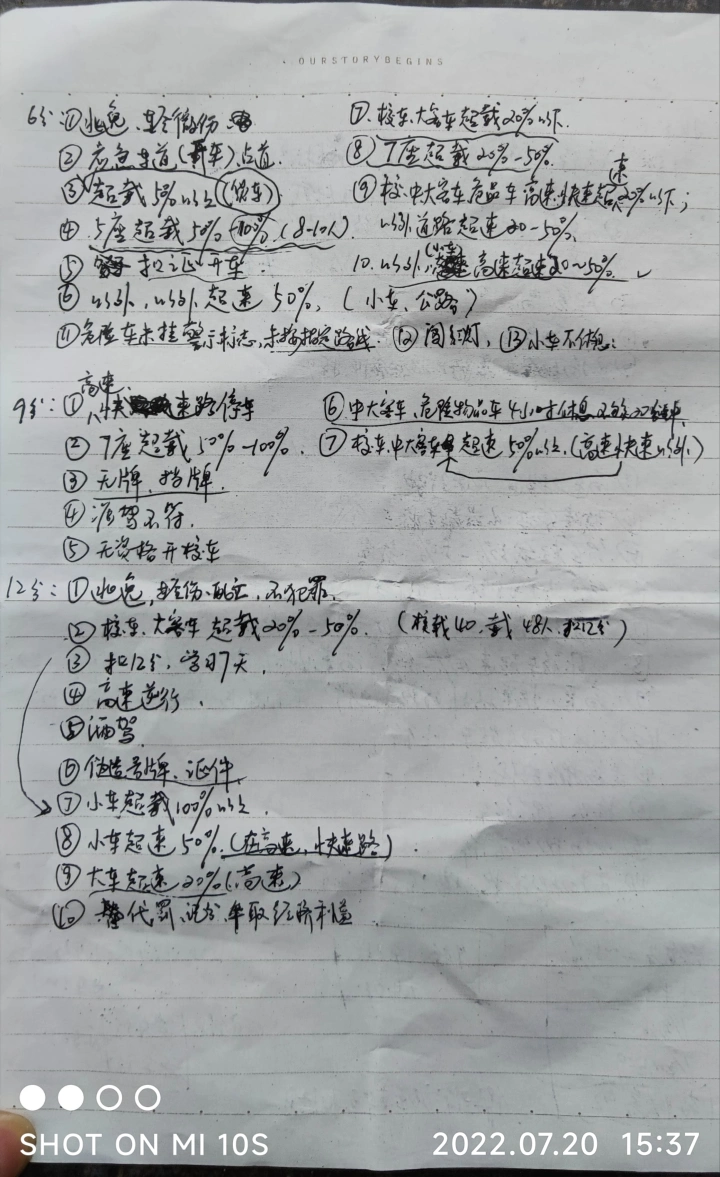 OURSTORYBEGINS
6分:①逃逸,轻微伤
②应急车道(开车)占道.
③超载50%以上(货车)
④5座超载50%-100%(8-10人).
⑤扣证开车.
⑥以外,以外超速50%,(小车、公路)
⑦.校车、大客车超载20%以下.
⑧7座超载20%-50%.
⑨校、中大客车危品车高速、快速超速20%以下;
以外道路超速20-50%,
10.以外,(小车)高速超速20~50%.
⑪危险车未挂警示标志,未按指定路线. ⑫闯红灯,⑬小车不休息:
高速.
9分:①快速路停车
②7座超载50%-100%.
③无牌、挡牌.
④准驾不符.
⑤无资格开校车
⑥中大客车、危险物品车4小时休息不够20分钟
⑦校车、中大客车超速50%以上.(高速快速以外)
12分:①逃逸,轻伤、死亡,不犯罪.
②校车、大客车超载20%-50%.(核载40,载48人,扣12分)
③扣12分,学习7天.
④高速逆行.
⑤酒驾
⑥伪造号牌、证件.
⑦小车超载100%以上.
⑧小车超速50%.(在高速、快速路).
⑨大车超速20%(高速)
⑩代罚、记分,牟取经济利益
SHOT ON MI 10S
2022.07.20 15:37